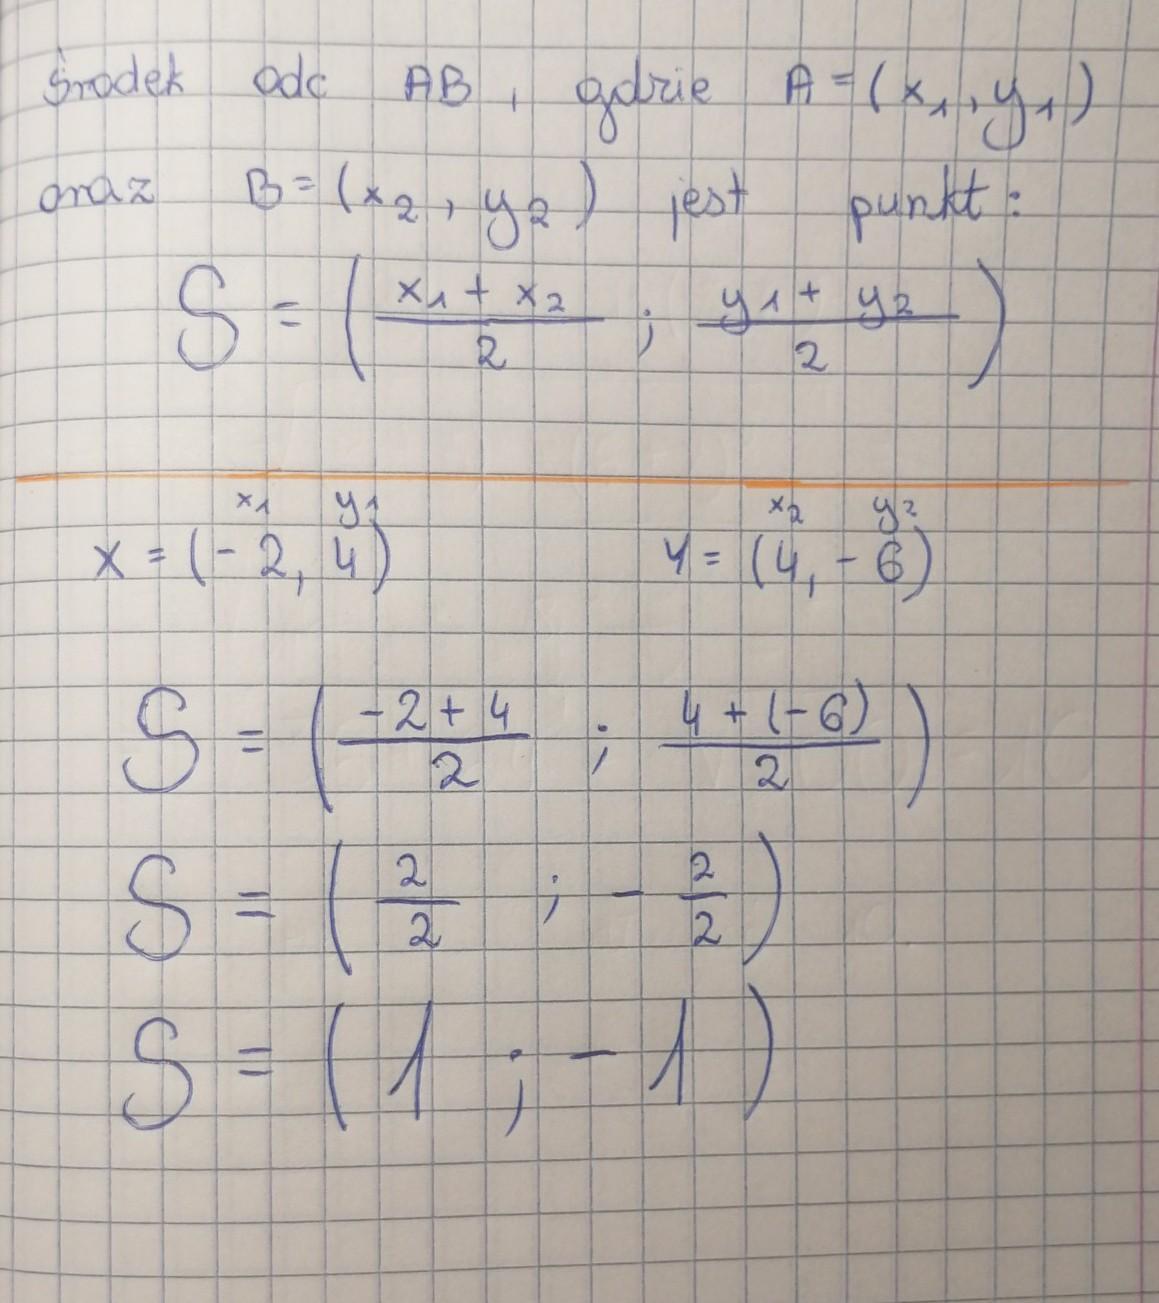 Środek odc AB, gdzie A=(x₁, y₁)
oraz B=(x₂, y₂) jest punkt:
S = ( (x₁ + x₂)/2 ; (y₁ + y₂)/2 )
x₁ y₁ x₂ y₂
X = (-2, 4) Y = (4, -6)
S = ( (-2+4)/2 ; (4+(-6))/2 )
S = ( 2/2 ; - 2/2 )
S = ( 1 ; - 1 )